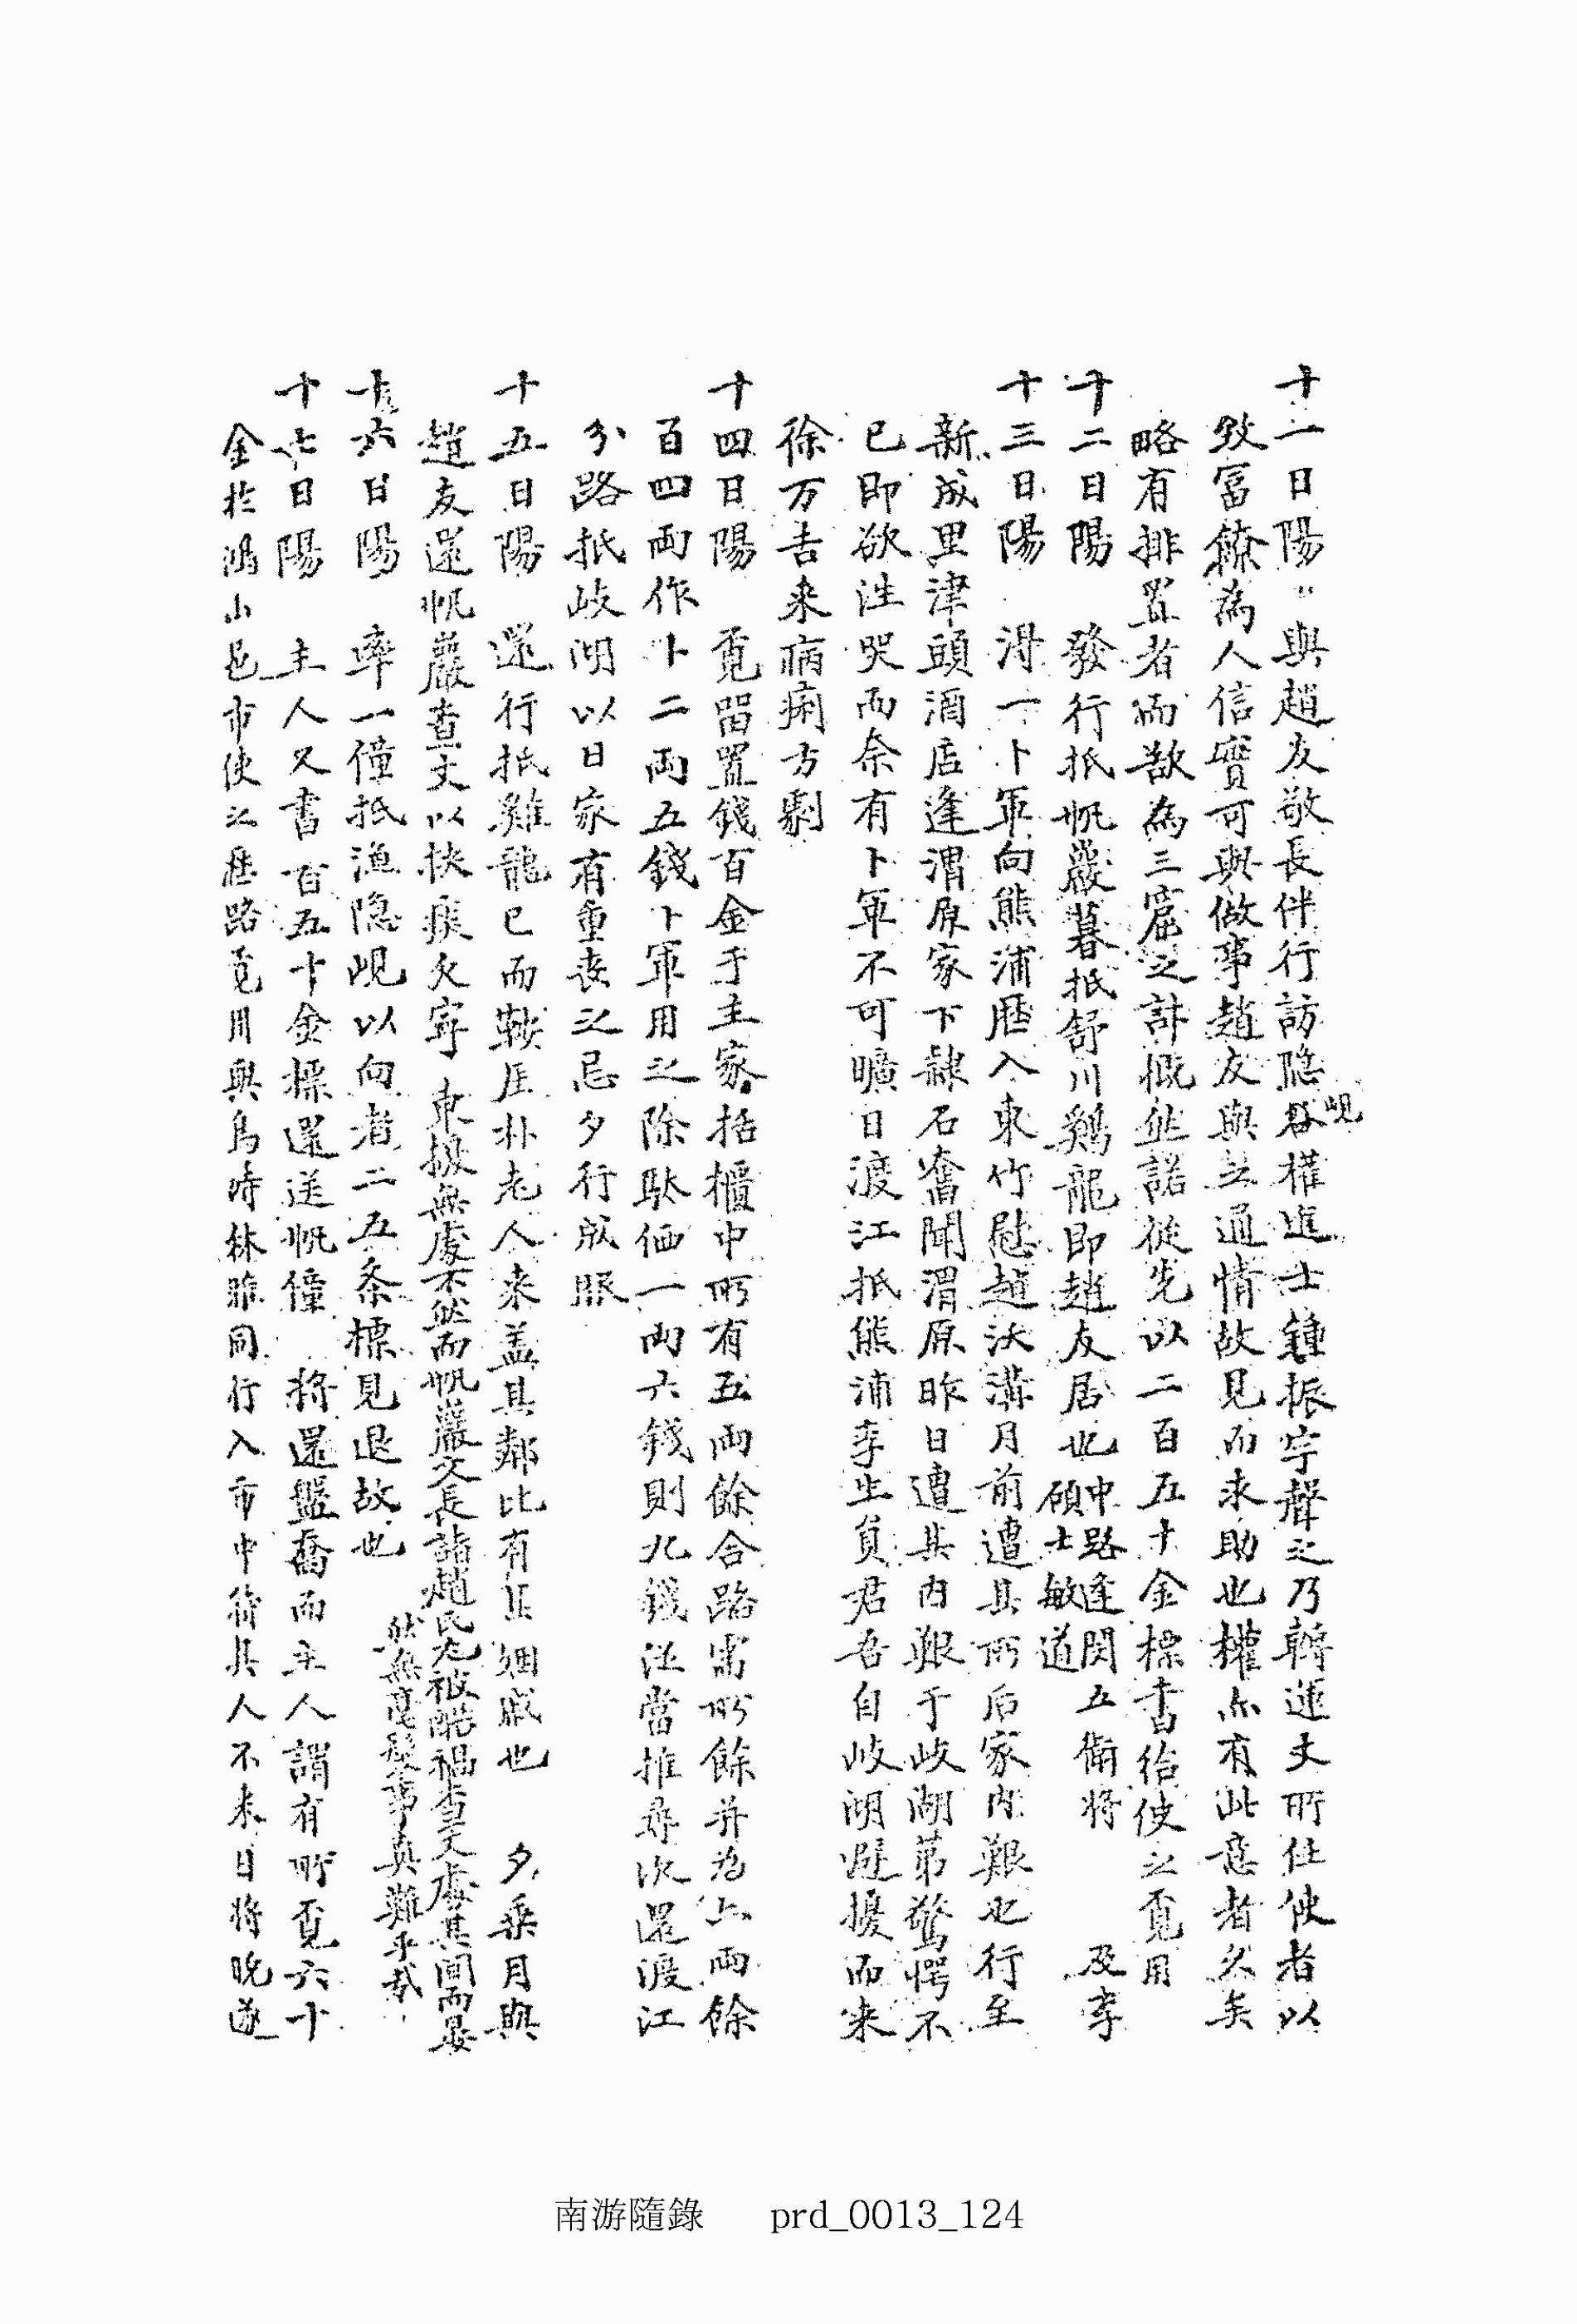 十一日陽 與趙友敬長伴行訪隐峴權進士鍾振字聲之乃轉運丈所任使者以
致富饒為人信實可與做事趙友與之通情故見而求助也權亦有此意者久矣
略有排置者而欲為三窟之計慨然諾從先以二百五十金標書給使之覔用
十二日陽 發行抵帆巖暮抵舒川鷄龍即趙友居也中路逢閔五衛將 及李
碩士敏道
十三日陽 得一卜軍向熊浦歷入東竹慰趙沃溝月前遭其所后家內艱也行至
新成里津頭酒店逢渭原家下隷石奮聞渭原昨日遭其內艱于岐湖第驚愕不
已即欲徃哭而奈有卜軍不可曠日渡江抵熊浦李生員君吾自岐湖避擾而來
徐万吉来病痢方劇
十四日陽 覔留置錢百金于主家括櫃中所有五両餘合路需所餘并為上両餘
百四両作卜二両五錢卜軍用之除駄価一両六錢則九錢泣當推尋次還渡江
分路抵岐湖以日家有重丧之忌夕行成服
十五日陽 還行抵雞龍已而鞍匡朴老人来盖其鄰比有其姻戚也 夕乘月與
趙友還帆巖查丈以挾痰欠寧 東擾無處不然而帆巖文長諸趙氏尤被酷禍查丈處其間而晏
然無毫髮事眞難乎哉
十六日陽 率一僮抵漁隐峴以向者二五条標見退故也
十七日陽 主人又書百五十金標還送帆僮 將還盤喬而主人謂有所覔六十
金於鴻山邑市使之歷路覔用與鳥峙林雅同行入市中待其人不来日將晚遂